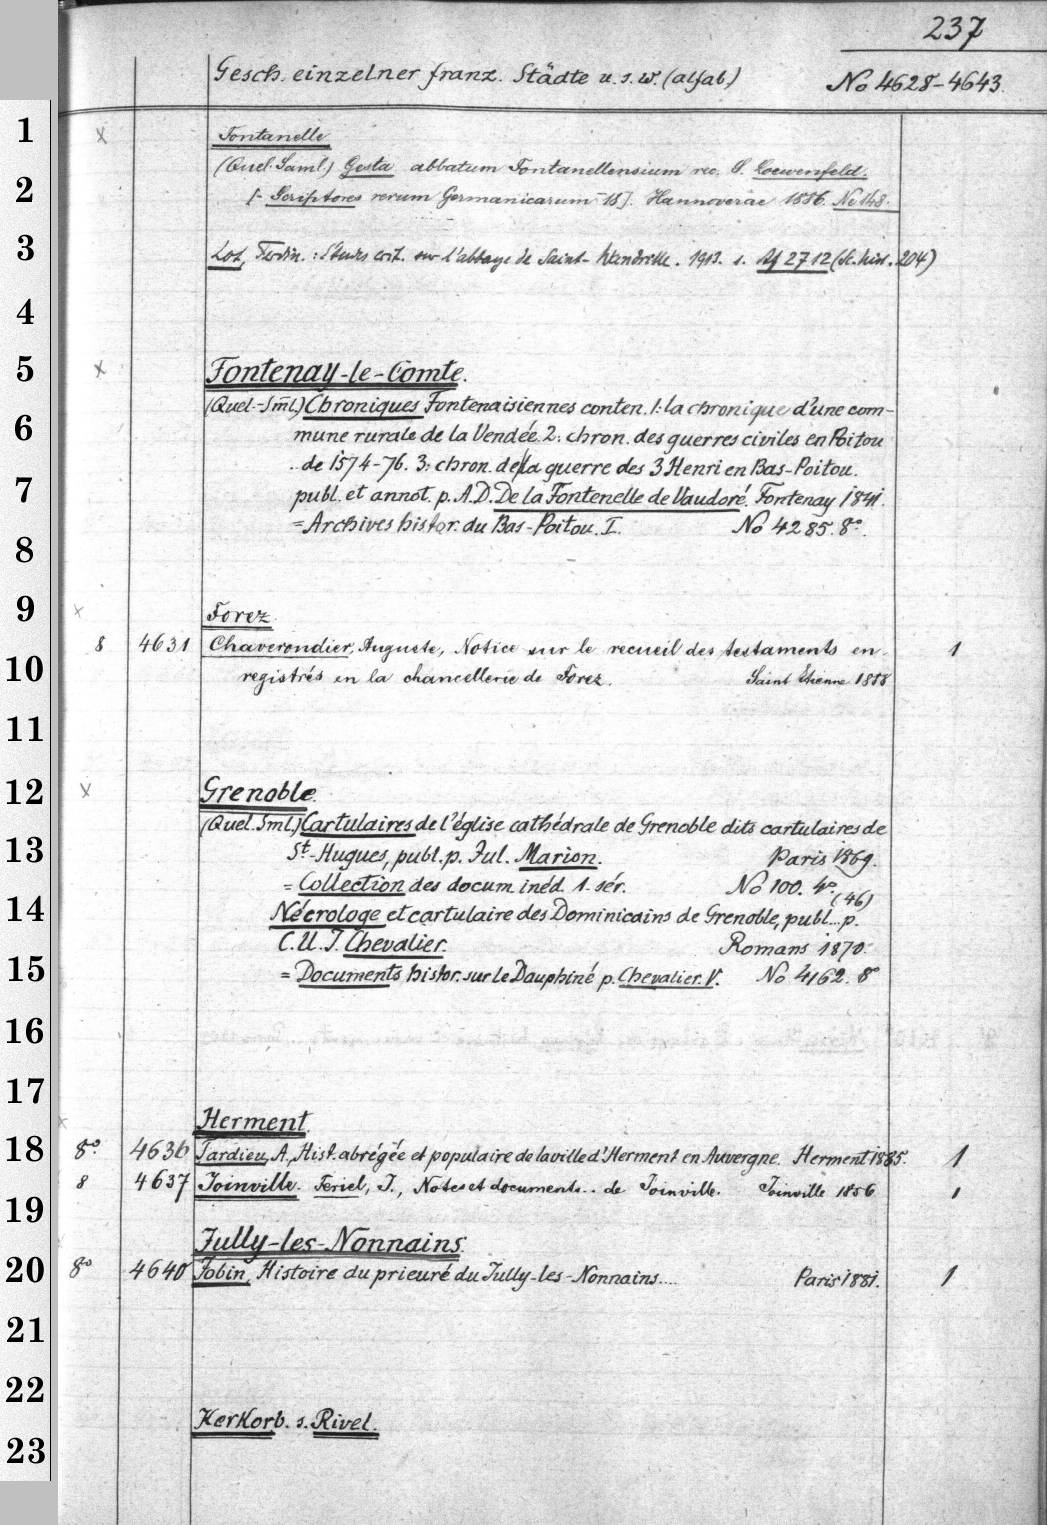 237
Gesch. einzelner franz. Städte u. s. w. (alfab.) No 4628-4643.
1 x Fontanelle
(Quel. Saml.) Gesta abbatum Fontanellensium rec. S. Loewenfeld.
2 [= Scriptores rerum Germanicarum - 18]. Hannoverae 1886. No 148.
3 Lot, Ferdin.: Études crit. sur l'abbaye de Saint-Wandrille. 1913. s. Af 2712 (Sc. hist. 204)
4
5 x Fontenay-le-Comte.
6 (Quel.-Sml.) Chroniques Fontenaisiennes conten. 1: la chronique d'une com-
mune rurale de la Vendée. 2: chron. des guerres civiles en Poitou
de 1574-76. 3: chron. de la guerre des 3 Henri en Bas-Poitou.
7 publ. et annot. p. A. D. De la Fontenelle de Vaudoré. Fontenay 1841.
= Archives histor. du Bas-Poitou. I. No 4285. 8º.
8
9 x Forez
8 4631 Chaverondier, Auguste, Notice sur le recueil des testaments en- 1
10 registrés en la chancellerie de Forez. Saint Etienne 1888
11
12 x Grenoble.
(Quel. Sml.) Cartulaires de l'église cathédrale de Grenoble dits cartulaires de
13 St-Hugues, publ. p. Jul. Marion. Paris 1869.
= Collection des docum. inéd. 1. sér. No 100. 4º. (46)
14 Nécrologe et cartulaire des Dominicains de Grenoble, publ... p.
C. U. J. Chevalier. Romans 1870.
15 = Documents histor. sur le Dauphiné p. Chevalier. V. No 4162. 8º
16
17
x Herment.
18 8º 4636 Tardieu, A., Hist. abrégée et populaire de la ville d'Herment en Auvergne. Herment 1885. 1
8 4637 Joinville. Fériel, J., Notes et documents.. de Joinville. Joinville 1856 1
19
Jully-les-Nonnains.
20 8º 4640 Jobin, Histoire du prieuré du Jully-les-Nonnains.... Paris 1881. 1
21
22
Kerkorb. s. Rivel.
23